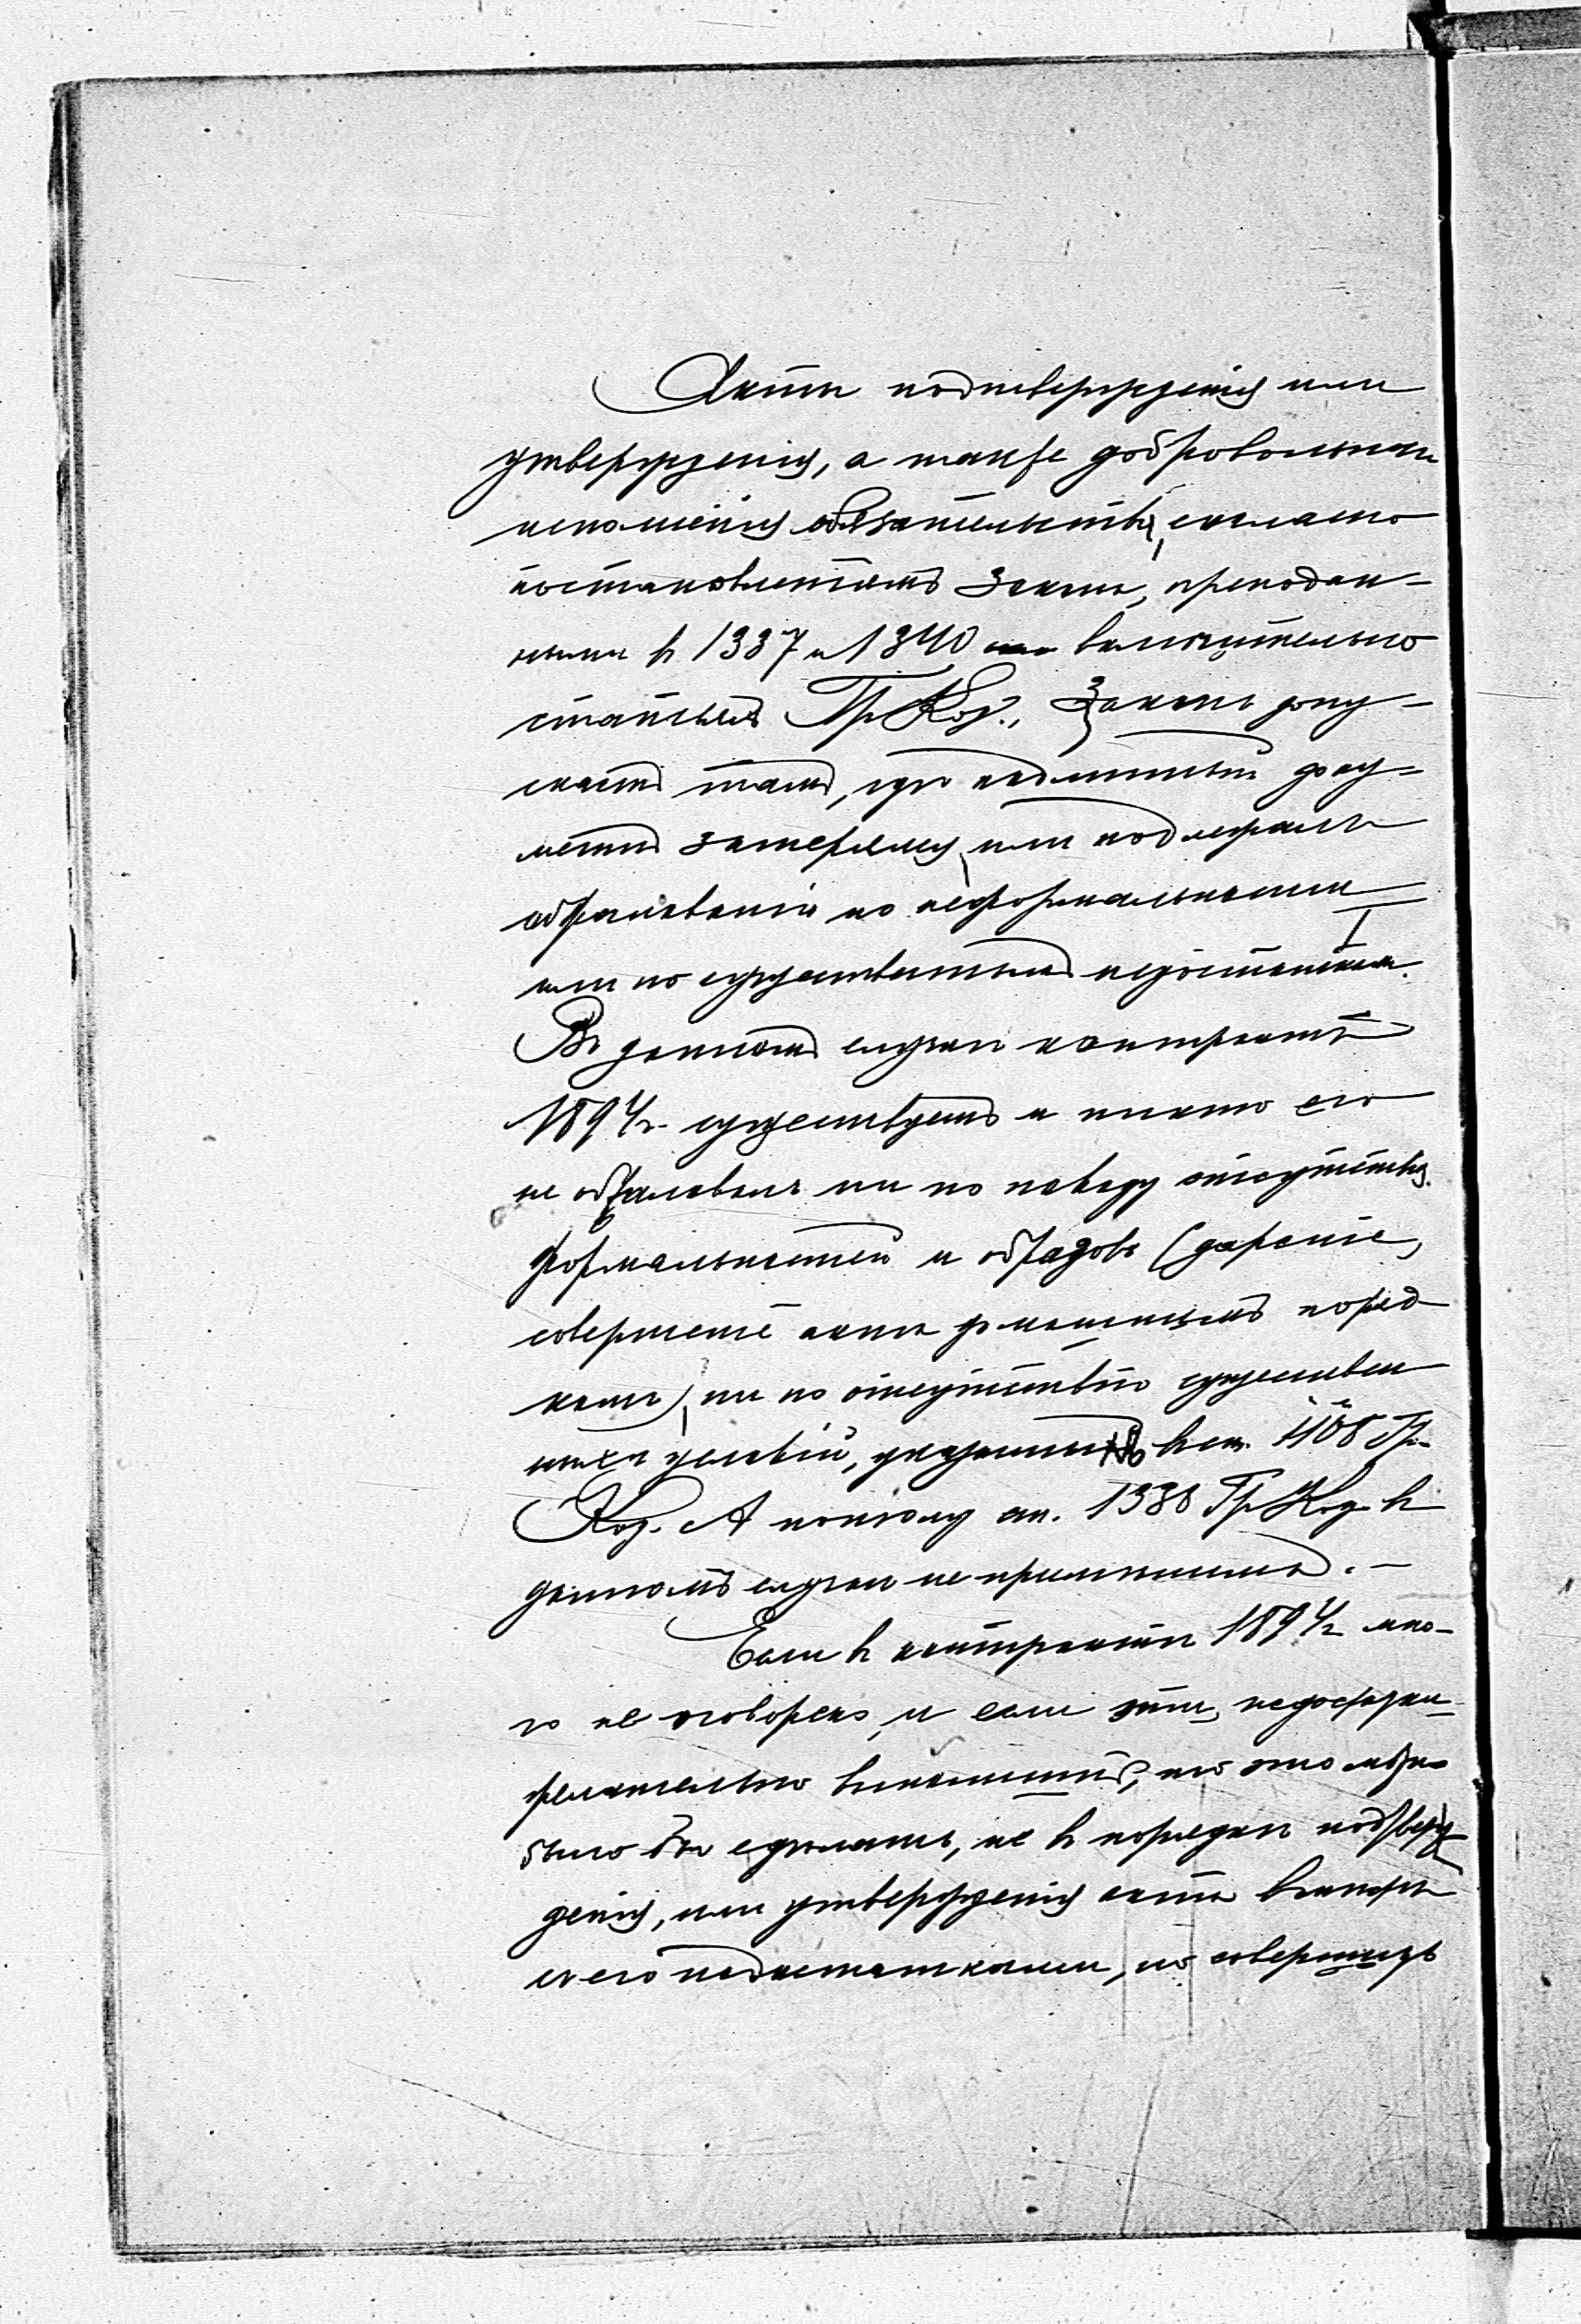 Акты подтвержденія или
утвержденія, а также добровольнаго
исполненія обязательствъ, согласно
постановленіямъ Закона, преподан-
нымъ въ 1337 и 1340 включительно
статьяхъ Гр. Код., Законъ допу-
скаетъ тамъ, гдѣ подлинный доку-
ментъ затерялся, или подлежалъ
обжалованію по неформальностямъ
или по существеннымъ недостаткамъ.
Въ данномъ случаѣ контрактъ
1894 г. существуетъ и никто его
не обжаловалъ ни по поводу отсутствія
формальностей и обрядовъ (дареніе,
совершеніе акта домашнимъ поряд-
комъ), ни по отсутствію существен
ныхъ условій, указанныхъ въ ст. 1108 Гр.
Код. А потому ст. 1338 Гр. Код. въ
данномъ случаѣ не примѣнима. —
Если въ контрактѣ 1894 г. мно-
го не оговорено, и если эти недостатки
желательно выполнить, то это можно
было бы сдѣлать, не въ порядкѣ подтверж
денія, или утвержденія акта
съ его недостатками, но совершивъ